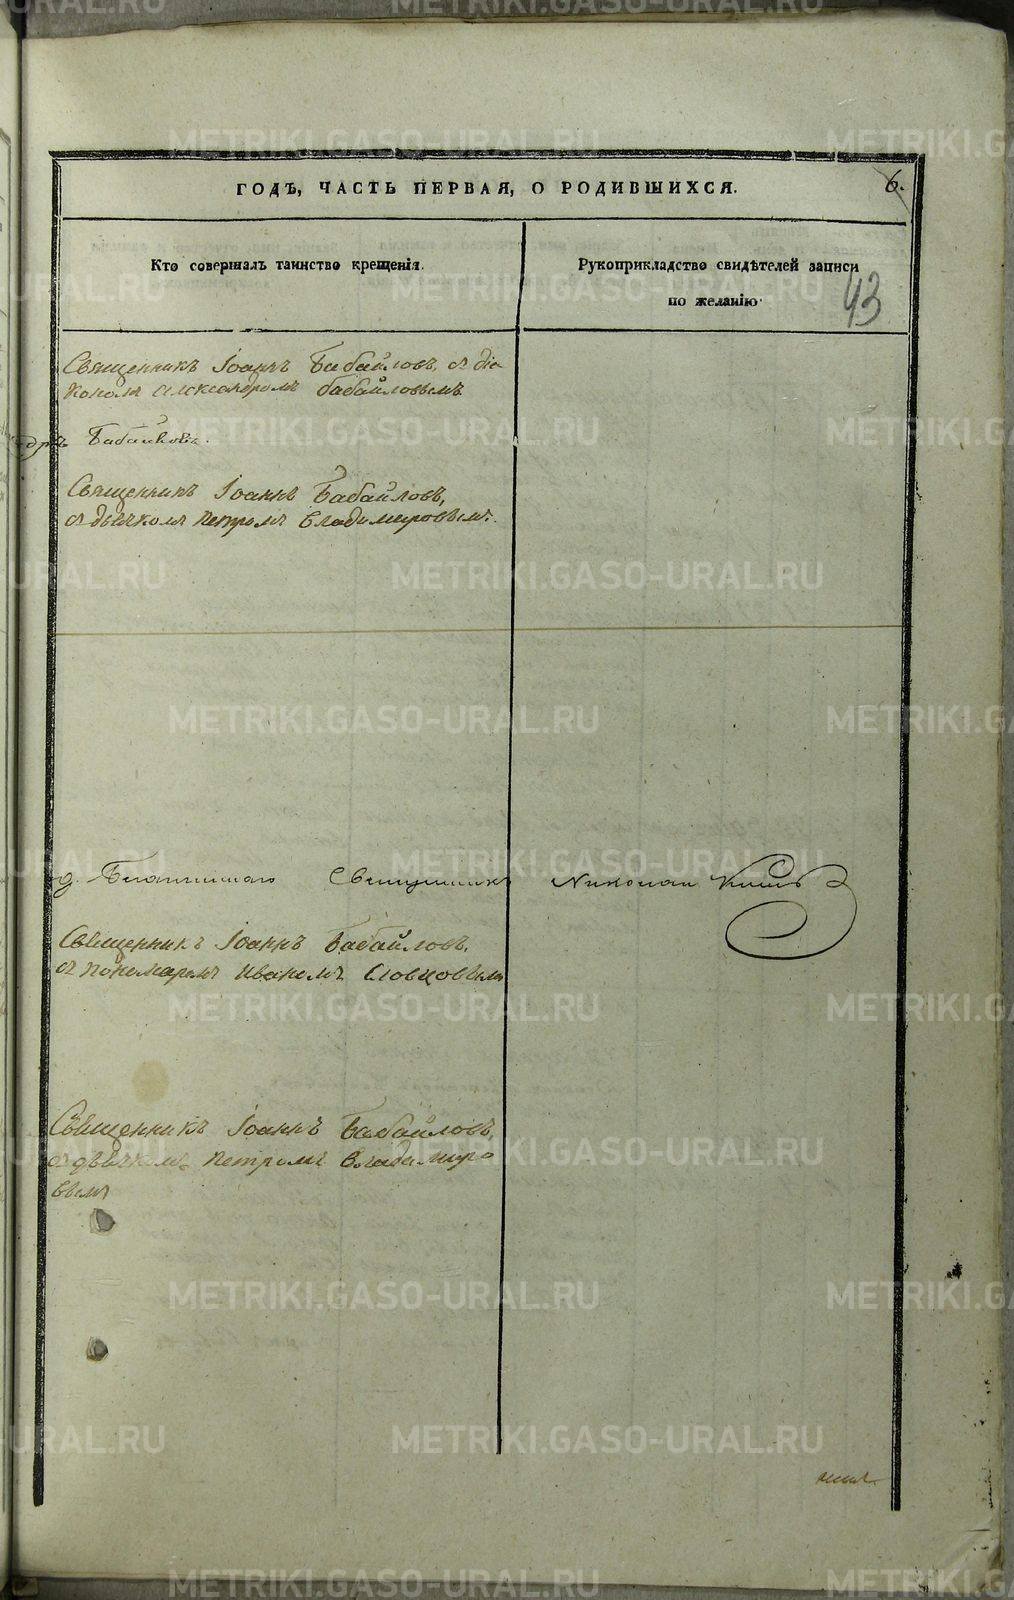 ГОДЪ, ЧАСТЬ ПЕРВАЯ, О РОДИВШИХСЯ.
6.
Кто совершалъ таинство крещенія.
Рукоприкладство свидѣтелей записи
по желанію
43
Священникъ Іоаннъ Бабайловъ, съ діа
кономъ Александромъ Бабайловымъ
Священникъ Іоаннъ Бабайловъ,
съ дьячкомъ Петромъ Владимировымъ.
Священникъ Николай
Священникъ Іоаннъ Бабайловъ,
съ пономаремъ Иваномъ Словцовымъ
Священникъ Іоаннъ Бабайловъ,
съ дьячкомъ Петромъ Владимиро
вымъ
METRIKI.GASO-URAL.RU